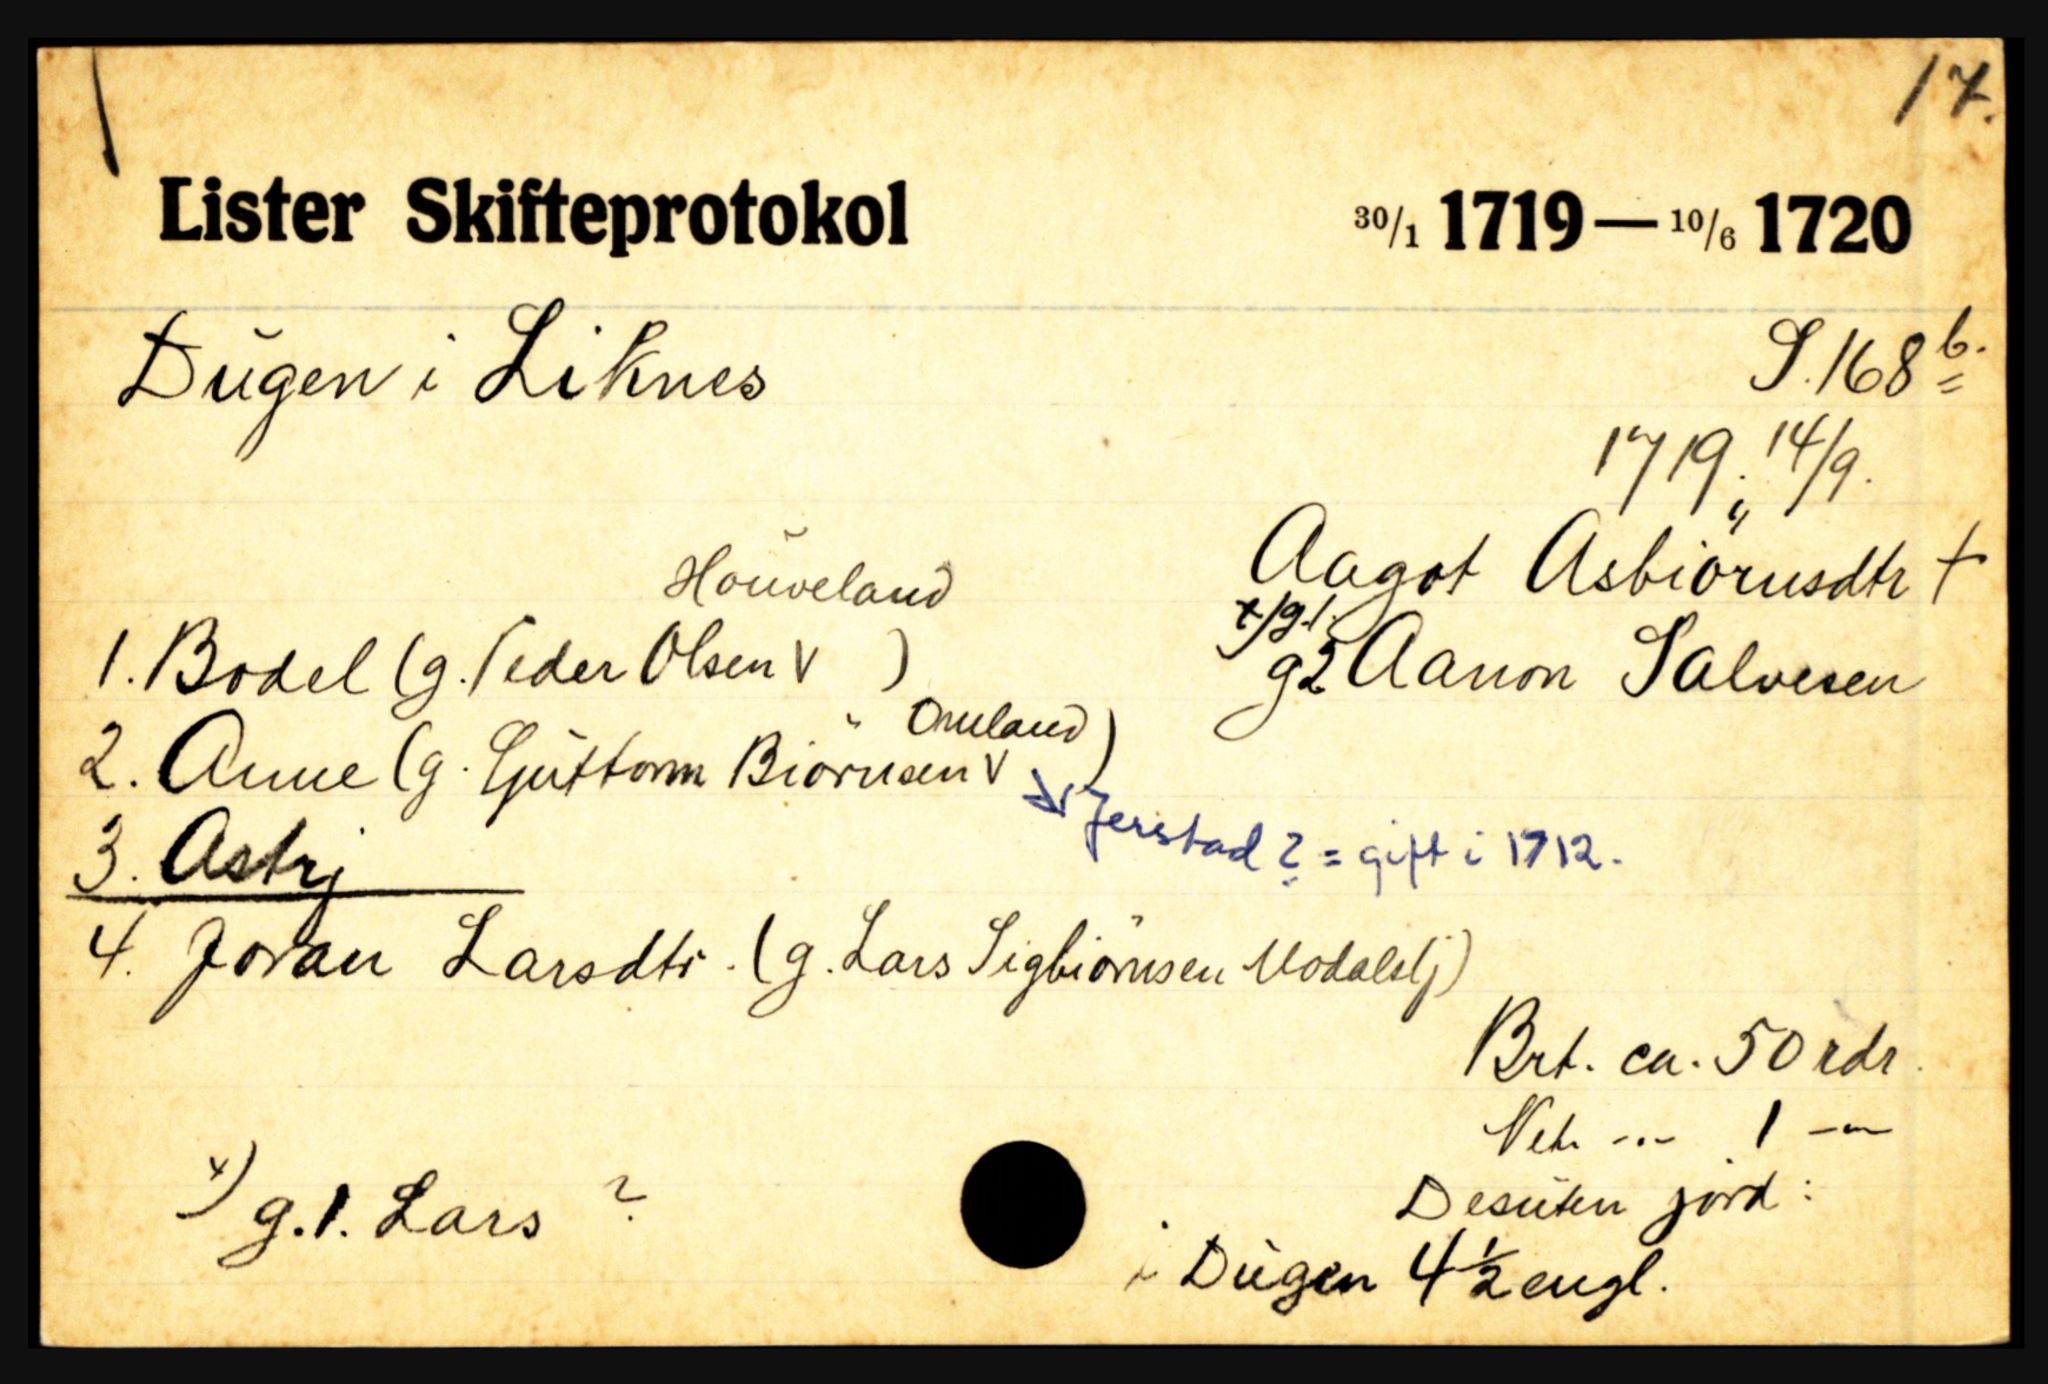 17.
Lister Skifteprotokol 30/1 1719 — 10/6 1720
Dŭgen i Liknes
S. 168 b.
1719, 14/9.
Aagot Asbiörnsdtr +
x) g.1.
g2 Aanon Salvesen
Hoŭveland
1. Bodel (g. Peder Olsen V )
Omland
2. Anne (g. Gŭttorm Biörnsen V )
Jerstad? = gift i 1712.
3. Astrj
4. Joran Larsdtr. (g. Lars Sigbiörnsen Modalslj)
Brt. ca. 50 rdr.
Net. -.- 1 -"-
Desŭten jord:
i Dŭgen 4½ engl.
x) g.1. Lars ?